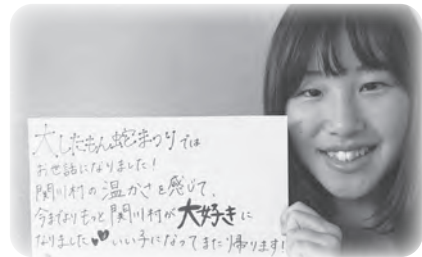 大したもん蛇まつりでは
お世話になりました！
関川村の温かさを感じて、
今まよりもっと関川村が大好きに
なりました♥♥いい子になってまた帰ります！